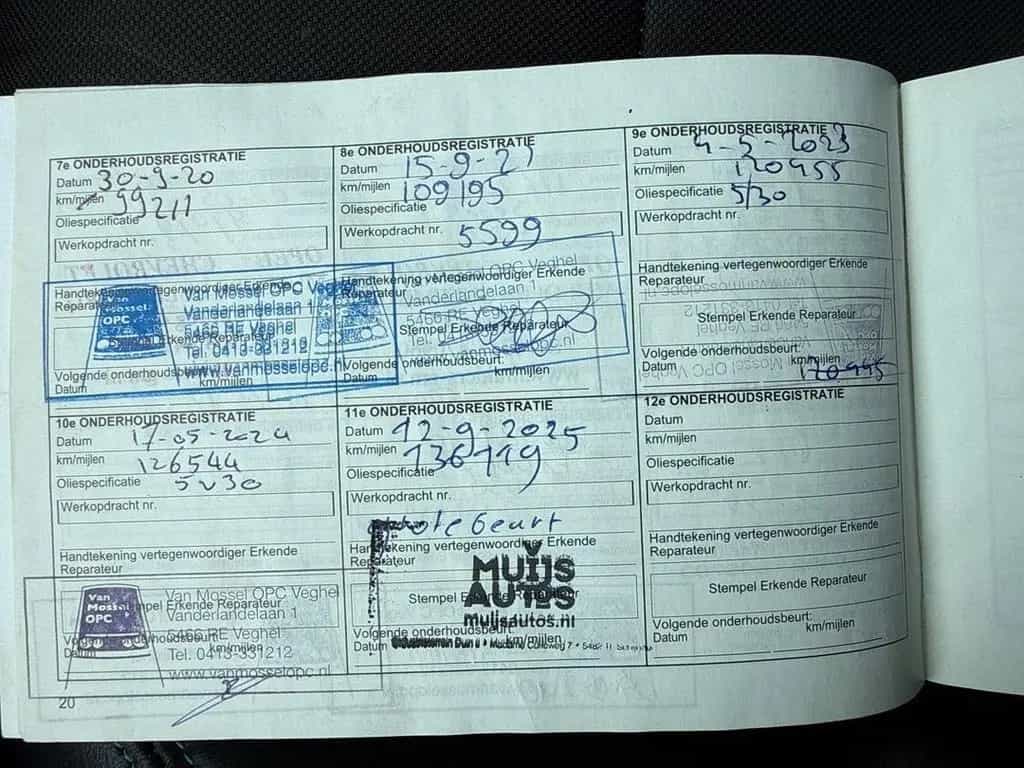 7e ONDERHOUDSREGISTRATIE
Datum 30-9-20
km/mijlen 99211
Oliespecificatie
Werkopdracht nr.
Handtekening vertegenwoordiger Erkende
Reparateur
Van Mossel OPC
Van Mossel OPC Veghel
Vanderlandelaan 1
5466 RE Veghel
Stempel Erkende Reparateur
Tel. 0413-331212
www.vanmosselopc.nl
Volgende onderhoudsbeurt:
Datum km/mijlen
8e ONDERHOUDSREGISTRATIE
Datum 15-9-21
km/mijlen 109195
Oliespecificatie
Werkopdracht nr. 5599
Handtekening vertegenwoordiger Erkende
Reparateur
OPC Veghel
Vanderlandelaan 1
5466 RE Veghel
Stempel Erkende Reparateur
Volgende onderhoudsbeurt:
Datum km/mijlen
9e ONDERHOUDSREGISTRATIE
Datum 4-5-2023
km/mijlen 120455
Oliespecificatie 5/30
Werkopdracht nr.
Handtekening vertegenwoordiger Erkende
Reparateur
Stempel Erkende Reparateur
Volgende onderhoudsbeurt:
Datum km/mijlen
10e ONDERHOUDSREGISTRATIE
Datum 17-05-2024
km/mijlen 126544
Oliespecificatie 5w30
Werkopdracht nr.
Handtekening vertegenwoordiger Erkende
Reparateur
Van Mossel OPC
Van Mossel OPC Veghel
Stempel Erkende Reparateur
Vanderlandelaan 1
5466 RE Veghel
Volgende onderhoudsbeurt:
Tel. 0413-331212
Datum km/mijlen
www.vanmosselopc.nl
11e ONDERHOUDSREGISTRATIE
Datum 12-9-2025
km/mijlen 136119
Oliespecificatie
Werkopdracht nr.
Grote beurt
Handtekening vertegenwoordiger Erkende
Reparateur
MUIJS
AUTOS
Stempel Erkende Reparateur
muijsautos.nl
Volgende onderhoudsbeurt:
Datum km/mijlen
12e ONDERHOUDSREGISTRATIE
Datum
km/mijlen
Oliespecificatie
Werkopdracht nr.
Handtekening vertegenwoordiger Erkende
Reparateur
Stempel Erkende Reparateur
Volgende onderhoudsbeurt:
Datum km/mijlen
20